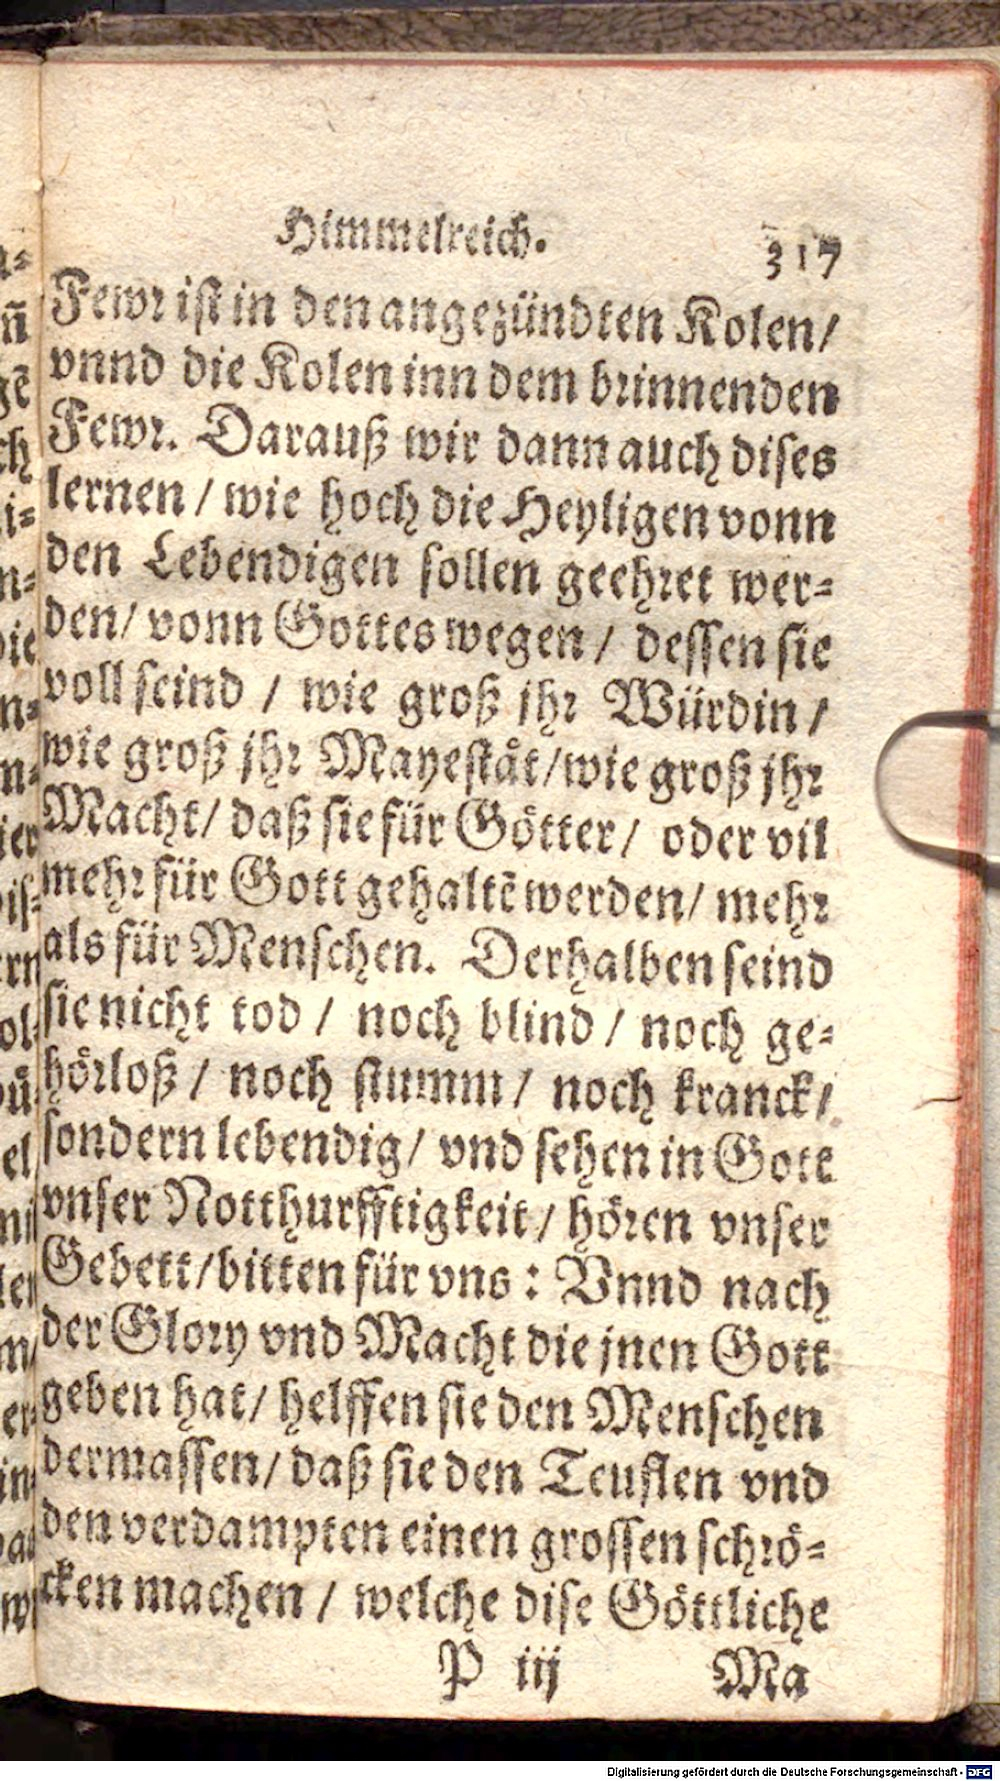 Himmelreich. 317
Fewr ist in den angezündten Kolen/
vnnd die Kolen inn dem brinnenden
Fewr. Darauß wir dann auch dises
lernen / wie hoch die Heyligen vonn
den Lebendigen sollen geehret wer-
den/ vonn Gottes wegen / dessen sie
voll seind / wie groß jhr Würdin /
wie groß jhr Mayestät/wie groß jhr
Macht/ daß sie für Götter/ oder vil
mehr für Gott gehaltẽ werden/ mehr
als für Menschen. Derhalben seind
sie nicht tod / noch blind / noch ge-
hörloß / noch stumm / noch kranck/
sondern lebendig/ vnd sehen in Gott
vnser Notthurfftigkeit/ hören vnser
Gebett/bitten für vns : Vnnd nach
der Glory vnd Macht die jnen Gott
geben hat/ helffen sie den Menschen
dermassen/ daß sie den Teuflen vnd
den verdampten einen grossen schrö-
cken machen / welche dise Göttliche
P iij Ma
Digitalisierung gefördert durch die Deutsche Forschungsgemeinschaft - DFG